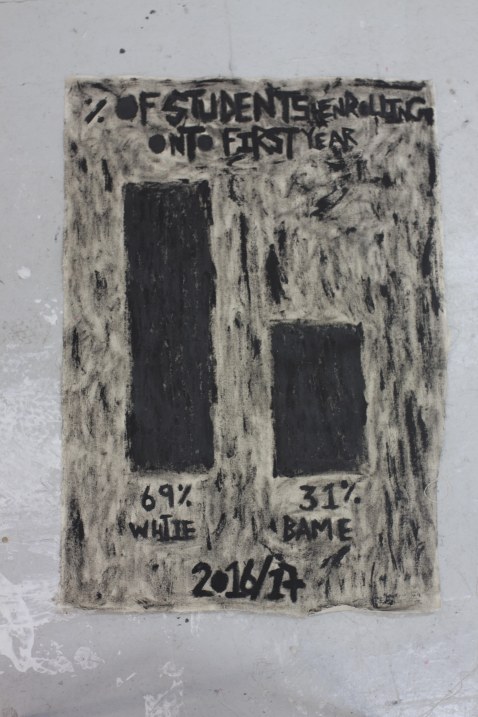 % OF STUDENTS ENROLLING
ONTO FIRST YEAR
69% 31%
WHITE BAME
2016/17